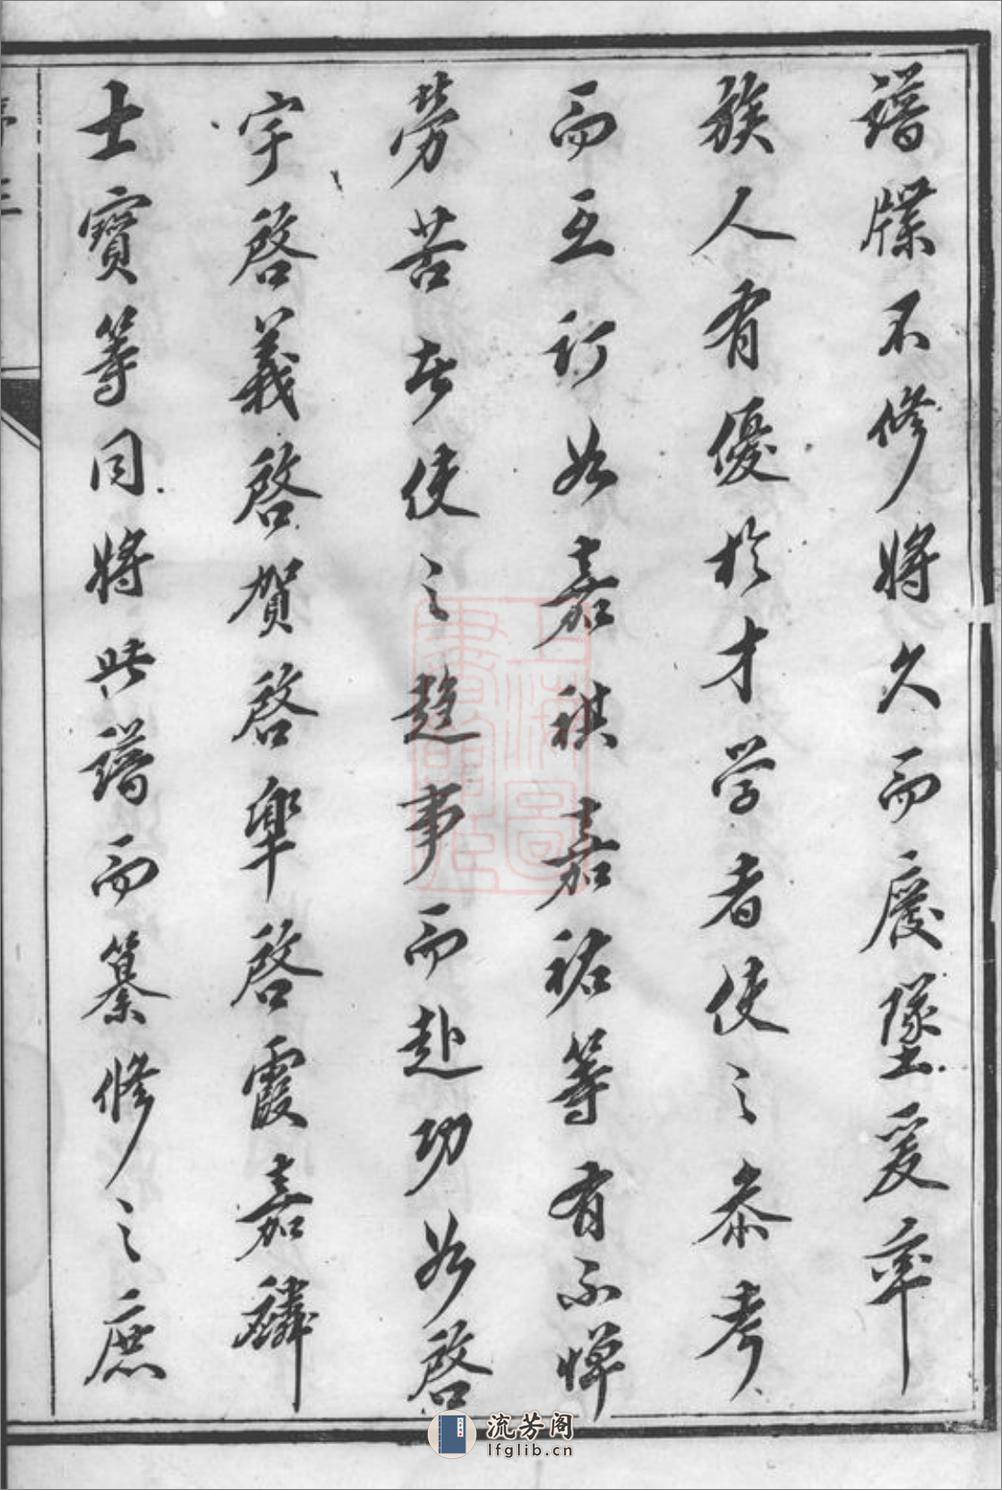 譜牒不修將久而廢墜爰率
族人有優於才学者使之叅考
而互訂如嘉祺嘉祐等有不憚
劳苦者使之趋事而赴功如啓
宇啓義啓賀啓率啓霞嘉麟
士寳等同將此譜而纂修之庶
流芳阁
lfglib.cn